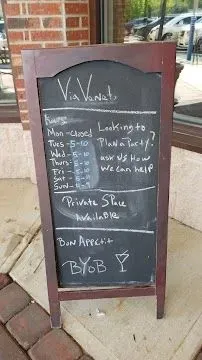 Via Vanato
Hours:
Mon - Closed
Tues - 5-10
Wed - 5-10
Thurs - 5-10
Fri - 5-10
Sat - 5-11
Sun - 4-9
Looking to
Plan a Party?
ask us How
we can help
Private Space
Available
Bon Appetit
BYOB